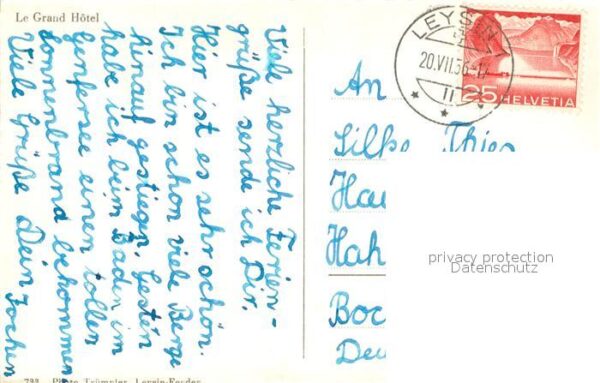 Le Grand Hôtel
Viele herzliche Ferien-
grüße sende ich Dir.
Hier ist es sehr schön.
Ich bin schon viele Berge
hinauf gestiegen. Gestern
habe ich beim Baden im
Genfersee einen tollen
Sonnenbrand bekommen
Viele Grüße Dein Jochen
LEYSIN
20.VII.56-17
25 HELVETIA
An
Silke Thier
Hau
Hah
Boc
Deu
privacy protection
Datenschutz